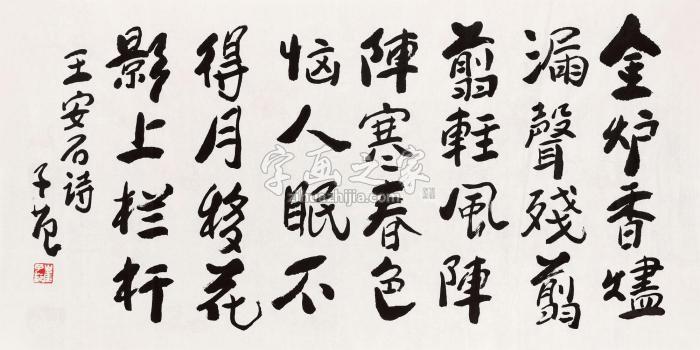 金炉香燼
漏聲殘翦
翦輕風陣
陣寒春色
恼人眠不
得月移花
影上栏杆
王安石诗
字画之家
zihuazhijia.com